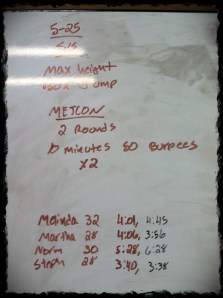 5-25
Max height
Box Jump
METCON
2 Rounds
10 minutes 50 Burpees
x2
Malinda 32 4:01, 4:45
Martha 28 4:06, 3:56
Norm 30 5:28, 6:28
Steph 28 3:40, 3:38